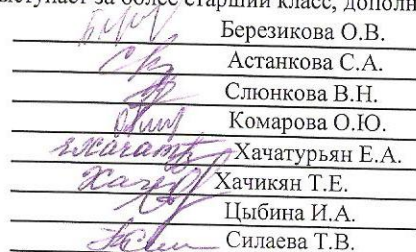 ыступает за более старший класс, дополн
Березикова О.В.
Астанкова С.А.
Слюнкова В.Н.
Комарова О.Ю.
Хачатурьян Е.А.
Хачикян Т.Е.
Цыбина И.А.
Силаева Т.В.